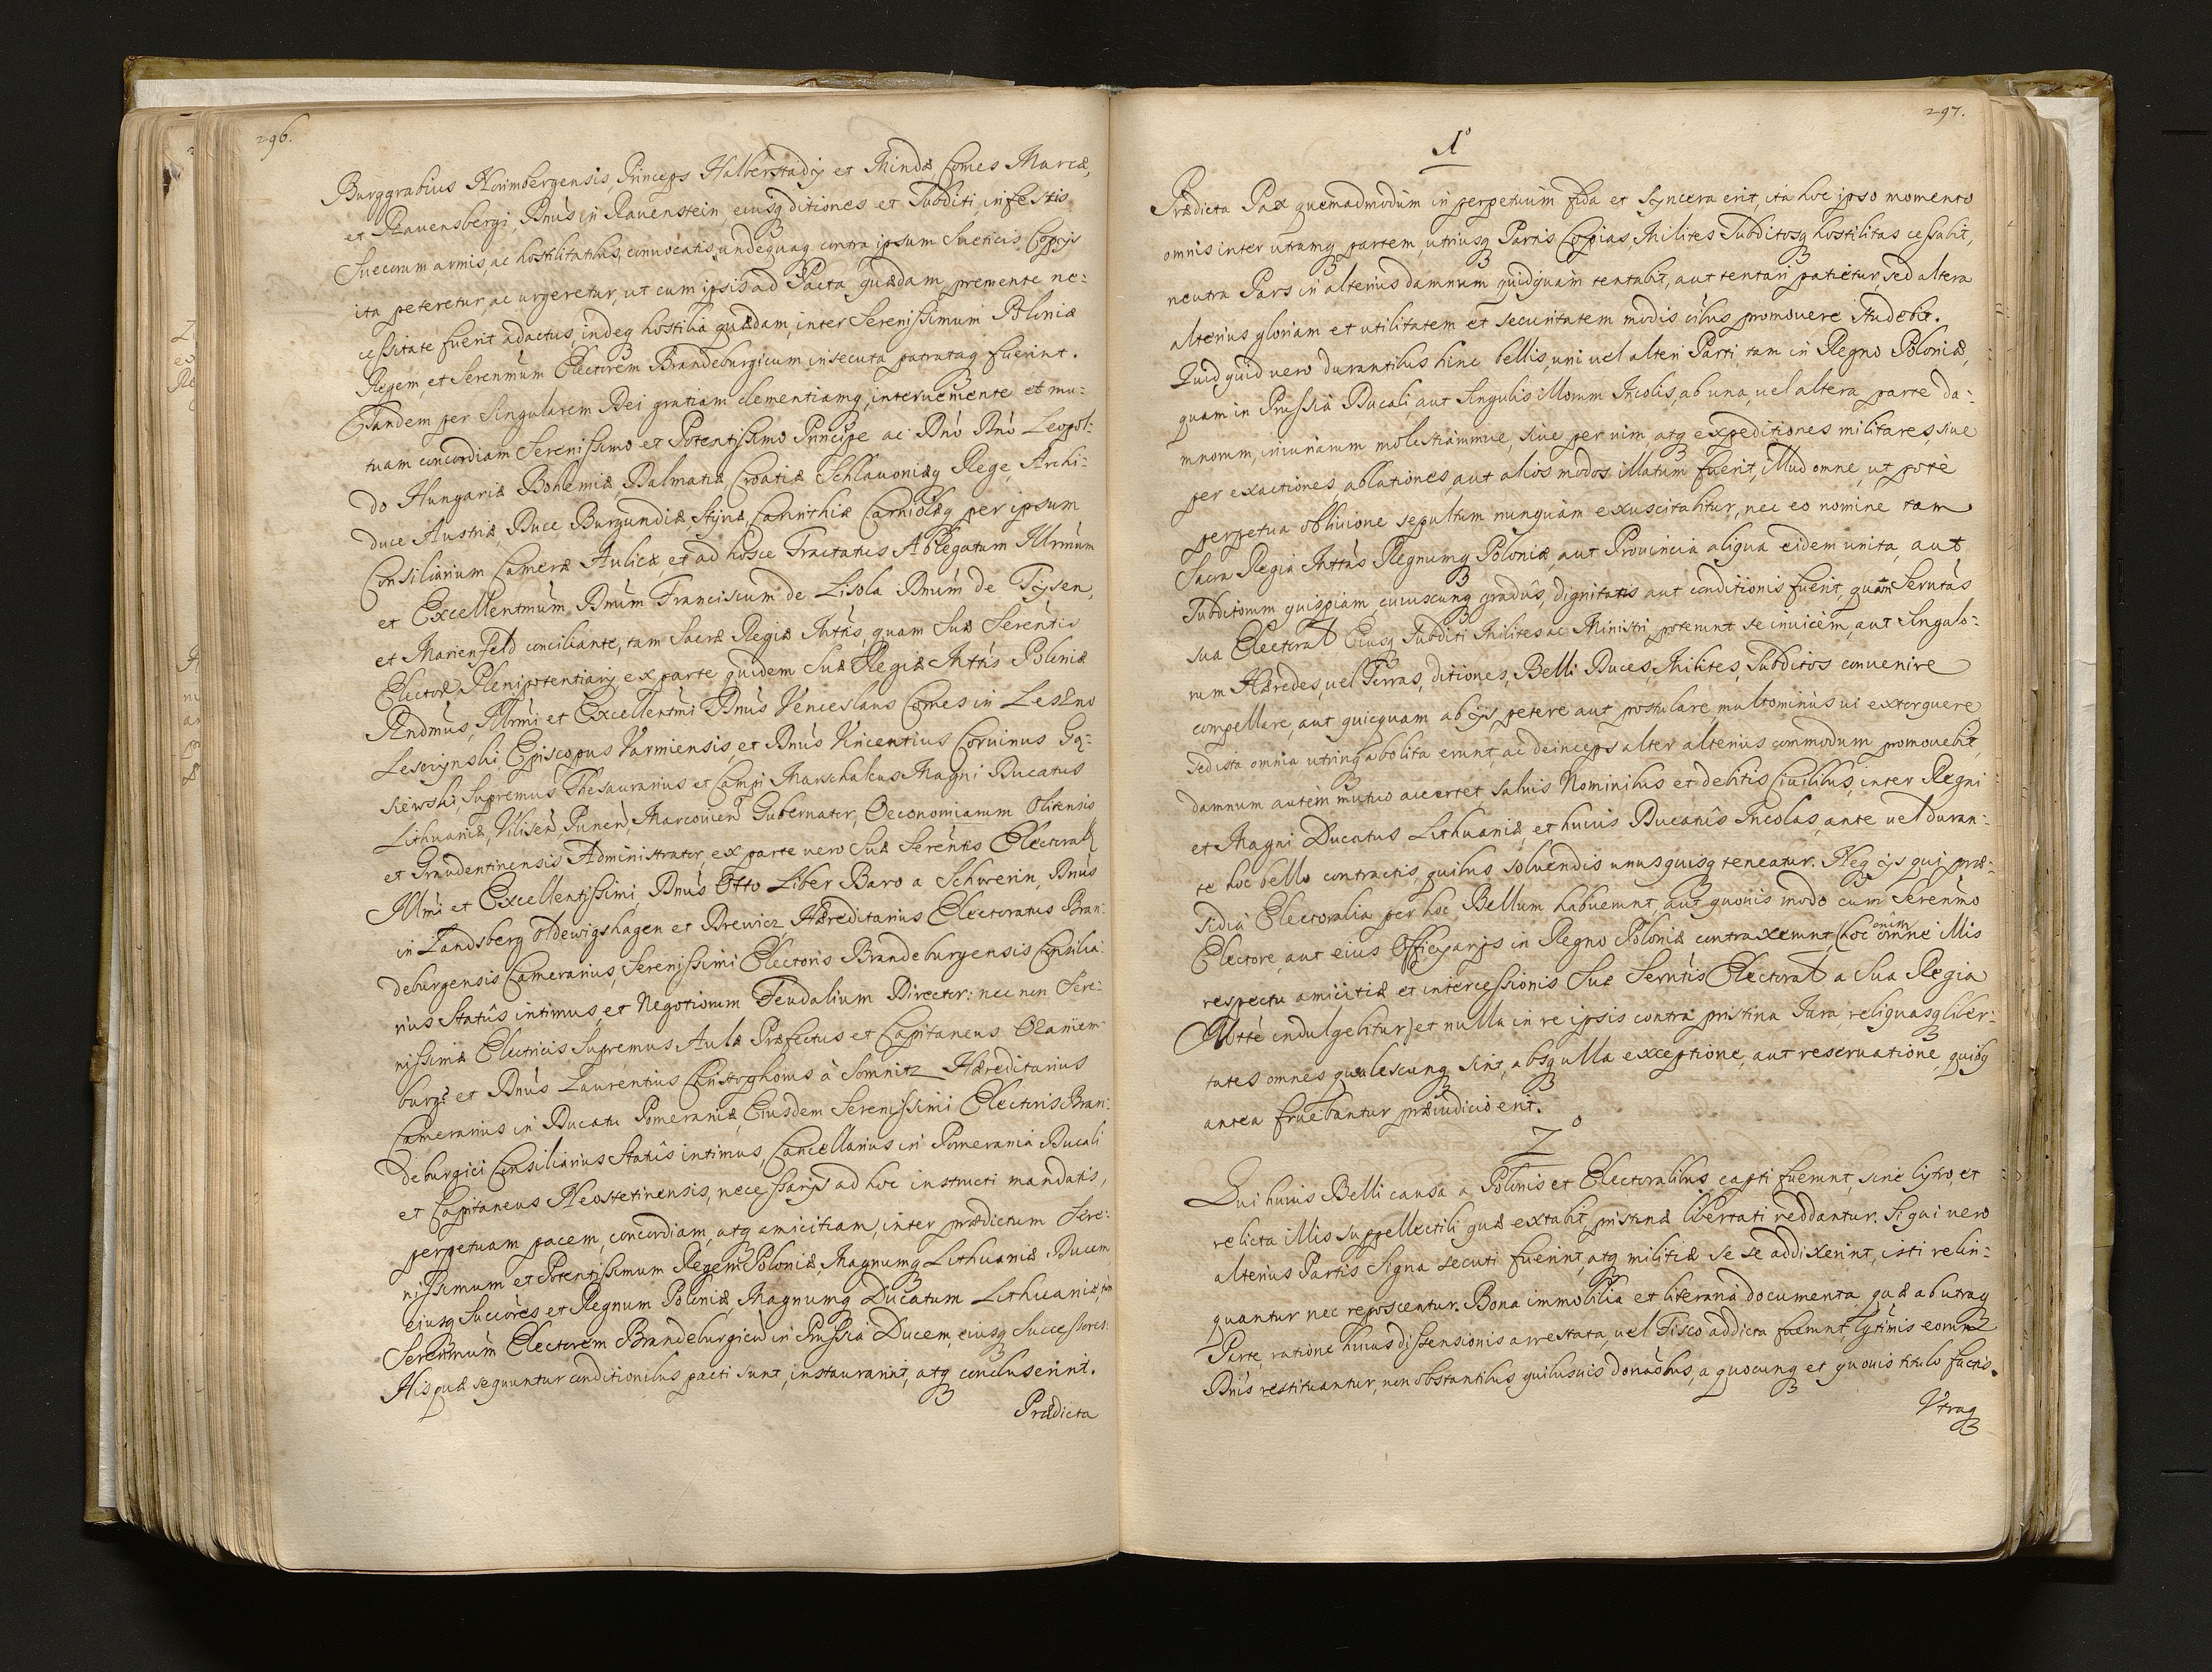 296.
Burggrabius Norimbergensis, Princeps Halberstadij et Mindæ, Comes Marcæ,
et Rauensbergi, Dnus in Rauenstein, eiusq ditiones et Subditi, infestis
Suecorum armis, ac hostilitatibus, conuocatis undequaq contra ipsum Sueticis Copijs
ita peteretur, ac urgeretur, ut cum ipsis ad Pacta quædam, premente ne:
cessitate fuerit adactus, indeq hostilia quædam, inter Serenissimum Poloniæ
Regem, et Serenmum Electorem Brandeburgicum, insecuta patrataq fuerint.
Tandem per singularem Dei gratiam clementiamq, interuemente et mu:
tuam concordiam Serenissimo et Potentissimo Principe ac Dno Dno Leopol:
do Hungariæ Bohemiæ, Dalmatiæ, Croatiæ Schlauoniæq Rege, Archi:
duce Austriæ, Duce Burgundiæ, Styriæ, Carinthiæ Carniolæq per ipsum
Consiliarium Cameræ Aulicæ, et ad hosce Tractatus Ablegatum Illrmum
et Excellentmum Dnum Franciscum de Lisola Dnum de Tysen,
et Marienfeld conciliante, tam Sacræ Regiæ Mttis, quam Suæ Serentis
Elector. Plenipotentiarij, ex parte quidem Suæ Regiæ Mttis Poloniæ
Rndmus, Illrmi et Excellentmi Dnus Venceslaus Comes in Leszno
Lesczynski, Episcopus Varmiensis, et Dnus Vincentius Coruinus Gą:
siewski, Supremus Thesaurarius et Campi Marschalcus Magni Ducatus
Lithuaniæ, Vilisen, Punen, Marcouien Gubernator, Oeconomiarum Olitensis
et Graudentinensis Administrator, ex parte uero Suæ Serentis Electoral
Illmi et Excellentissimi, Dnus Otto Liber Baro a Schwerin, Dnus
in Landsberg Oldewigshagen et Drewicz, Hæreditarius Electoratus Bran:
deburgensis Camerarius, Serenissimi Electoris Brandeburgensis Consilia:
rius Status intimus, et Negotiorum Feudalium Director: nec non Sere:
nissimæ Electricis Supremus Aulæ Præfectus et Capitaneus Oraniem:
burgs et Dnus Laurentius Christophorus à Somnitz Hæreditarius
Camerarius in Ducatu Pomeraniæ, Eiusdem Serenissimi Electoris Bran:
deburgici Consiliarius Statûs intimus, Cancellarius in Pomerania Ducali
et Capitaneus Neostetinensis, necessarijs ad hoc instructi mandatis,
perpetuam pacem, concordiam, atq amicitiam, inter prædictum Sere:
nissimum et Potentissimum Regem Poloniæ, Magnumq Lithuaniæ Ducem,
eiusq Succores et Regnum Poloniæ, Magnumq Ducatum Lithuaniæ, tum
Serenmum Electorem Brandeburgicu in Prussia Ducem, eiusq Successores:
His quæ sequuntur conditionibus pacti sunt, instaurarint, atq concluserint.
Prædicta
297.
1º
Prædicta Pax quemadmodum in perpetuum fida et syncera erit, ita hoc ipso momento
omnis inter utramq partem, utriusq Partis Copias, Milites Subditosq hostilitas cessabit,
neutra Pars in alterius damnum quidquam tentabit, aut tentari patietur, sed altera
alterius gloriam et utilitatem et securitatem modis oibus promouere studebit.
Quid quid uero durantibus hinc bellis, uni uel alteri Parti, tam in Regno Poloniæ,
quam in Prussia Ducali, aut singulis illorum Incolis, ab una, uel altera parte da:
mnorum, iniuriarum molestiarumue, siue per uim, atq expeditiones militares, siue
per exactiones, ablationes, aut alios modos illatum fuerit, illud omne, ut pote
perpetua obliuione sepultum nunquam exuscitabitur, nec eo nomine tam
Sacra Regia Mttas Regnumq Poloniæ, aut Prouincia aliqua eidem unita, aut
Subditorum quispiam, cuiuscunq gradûs, dignitatis aut conditionis fuerit, quam Serntas
sua Electoral Eiusq Subditi Milites ac Ministri, poterunt se inuicem, aut singulo:
rum Hæredes, uel Terras, ditiones, Belli Duces, Milites, Subditos conuenire
compellare, aut quicquam ab ijs, petere aut postulare, multominus ui extorquere
sed ista omnia, utrinq abolita erunt, ac deinceps alter alterius commodum promouebit,
damnum autem mutuo auertet, saluis Nominibus et debitis Ciuilibus, inter Regni
et Magni Ducatus Lithuaniæ, et huius Ducatûs Incolas, ante uel duran:
te hoc bello contractis, quibus soluendis unusquisq teneatur. Neq ijs qui præ:
sidia Electoralia per hoc Bellum habuerunt, aut quouis modo cum Serenmo
Electore, aut eius Officiarijs in Regno Poloniæ contraxerunt, (hoc enim omne illis
respectu amicitiæ et intercessionis Suæ Serntis Electoral a Sua Regia
Mtte indulgebitur) et nulla in re ipsis contra pristina Iura, reliquasq liber:
tates omnes qualescunq sint, absq ulla exceptione, aut reseruatione, quibq
antea fruebantur præiudicio erit.
2º
Qui huius Belli causa a Polonis et Electoralibus capti fuerunt, sine lytro, et
relicta illis suppellectili quæ extabit, pristinæ libertati reddantur. Si qui uero
alterius Partis Signa secuti fuerint, atq militiæ se se addixerint, isti relin:
quantur nec reposcentur. Bona immobilia et literaria documenta, quæ ab utraq
Parte, ratione huius dissensionis arrestata, uel Fisco addicta fuerunt, lgtimis eorum
Dnis restituantur, non obstantibus quibusuis donaobus, a quocunq et quouis titulo factis.
Vtraq